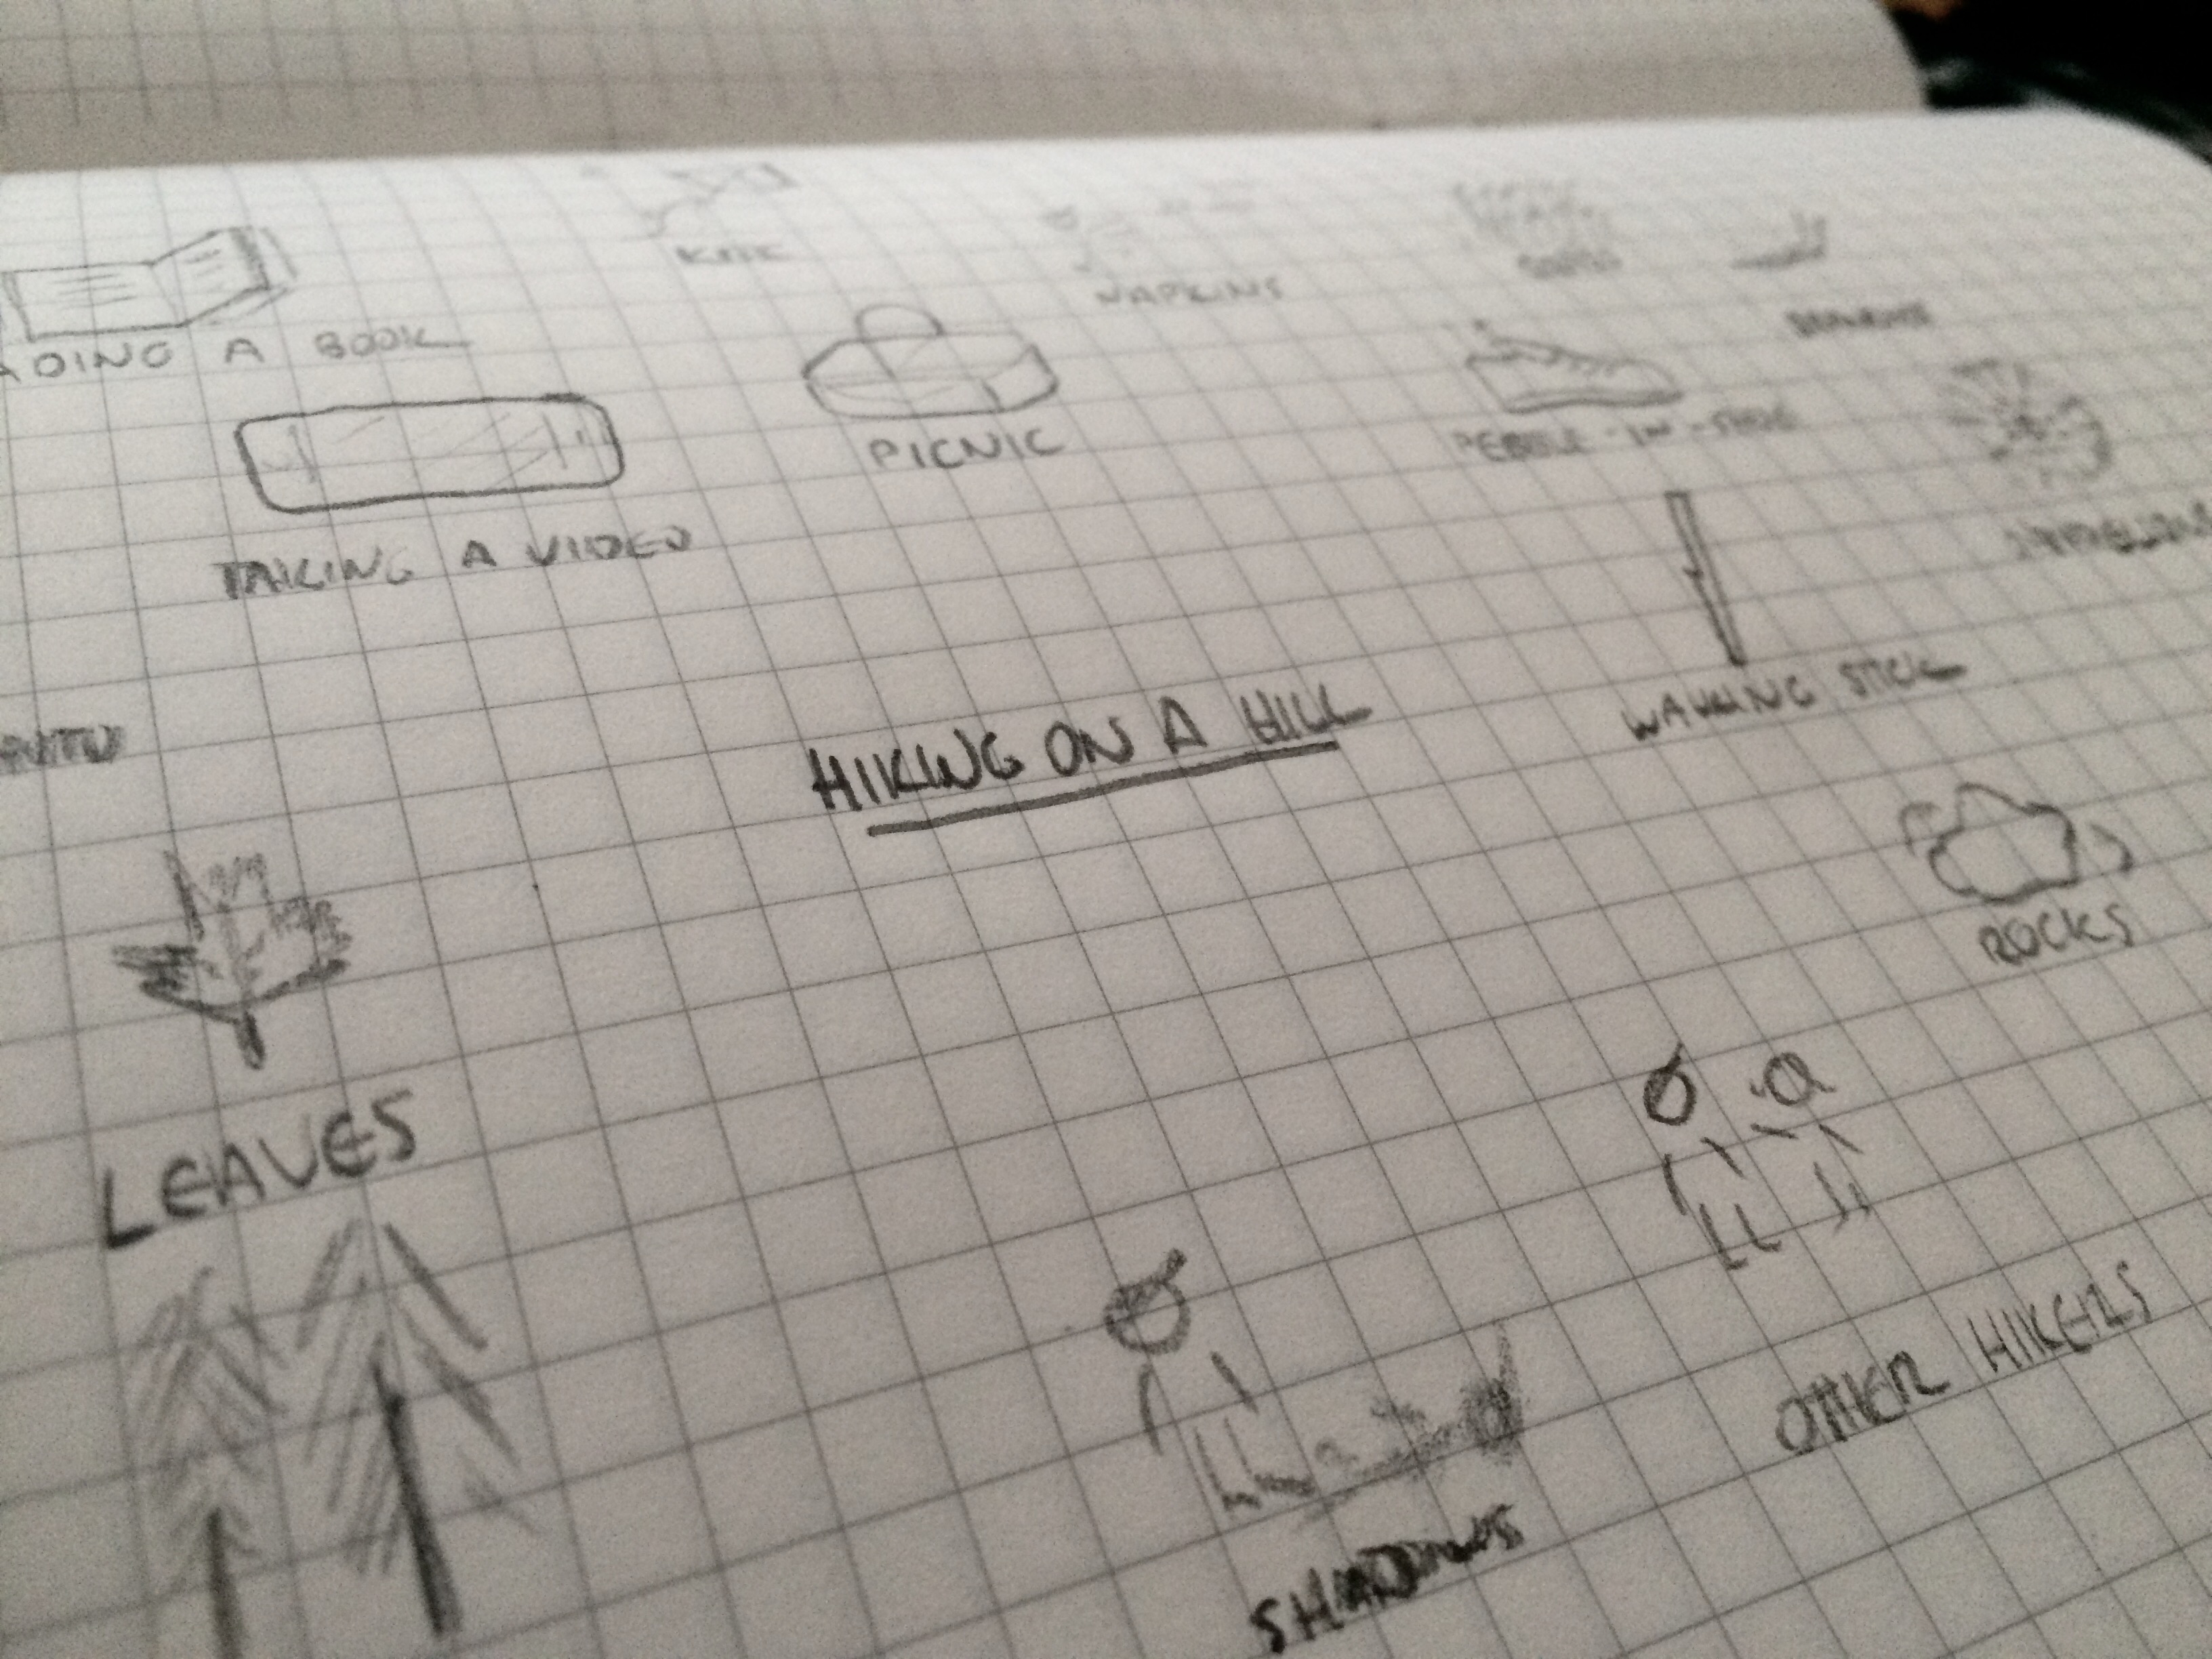 KITE
NAPKINS
A BOOK
PICNIC
PEBBLE-IN-SHOE
TAKING A VIDEO
WALKING STICK
HIKING ON A HILL
ROCKS
LEAVES
OTHER HIKERS
SHADOWS